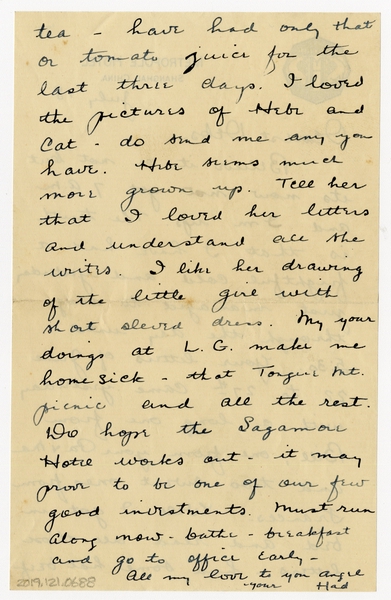 tea - have had only that
or tomato juice for the
last three days. I loved
the pictures of Hebe and
Cat - do send me any you
have. Hebe seems much
more grown up. Tell her
that I loved her letters
and understand all she
writes. I like her drawing
of the little girl with
short sleved dress. My your
doings at L. G. make me
homesick - that Tongue Mt.
picnic and all the rest.
Do hope the Sagamore
Hotel works out - it may
prove to be one of our few
good investments. Must run
along now - bathe - breakfast
and go to office early -
All my love to you angel
your Had
2019.121.0688